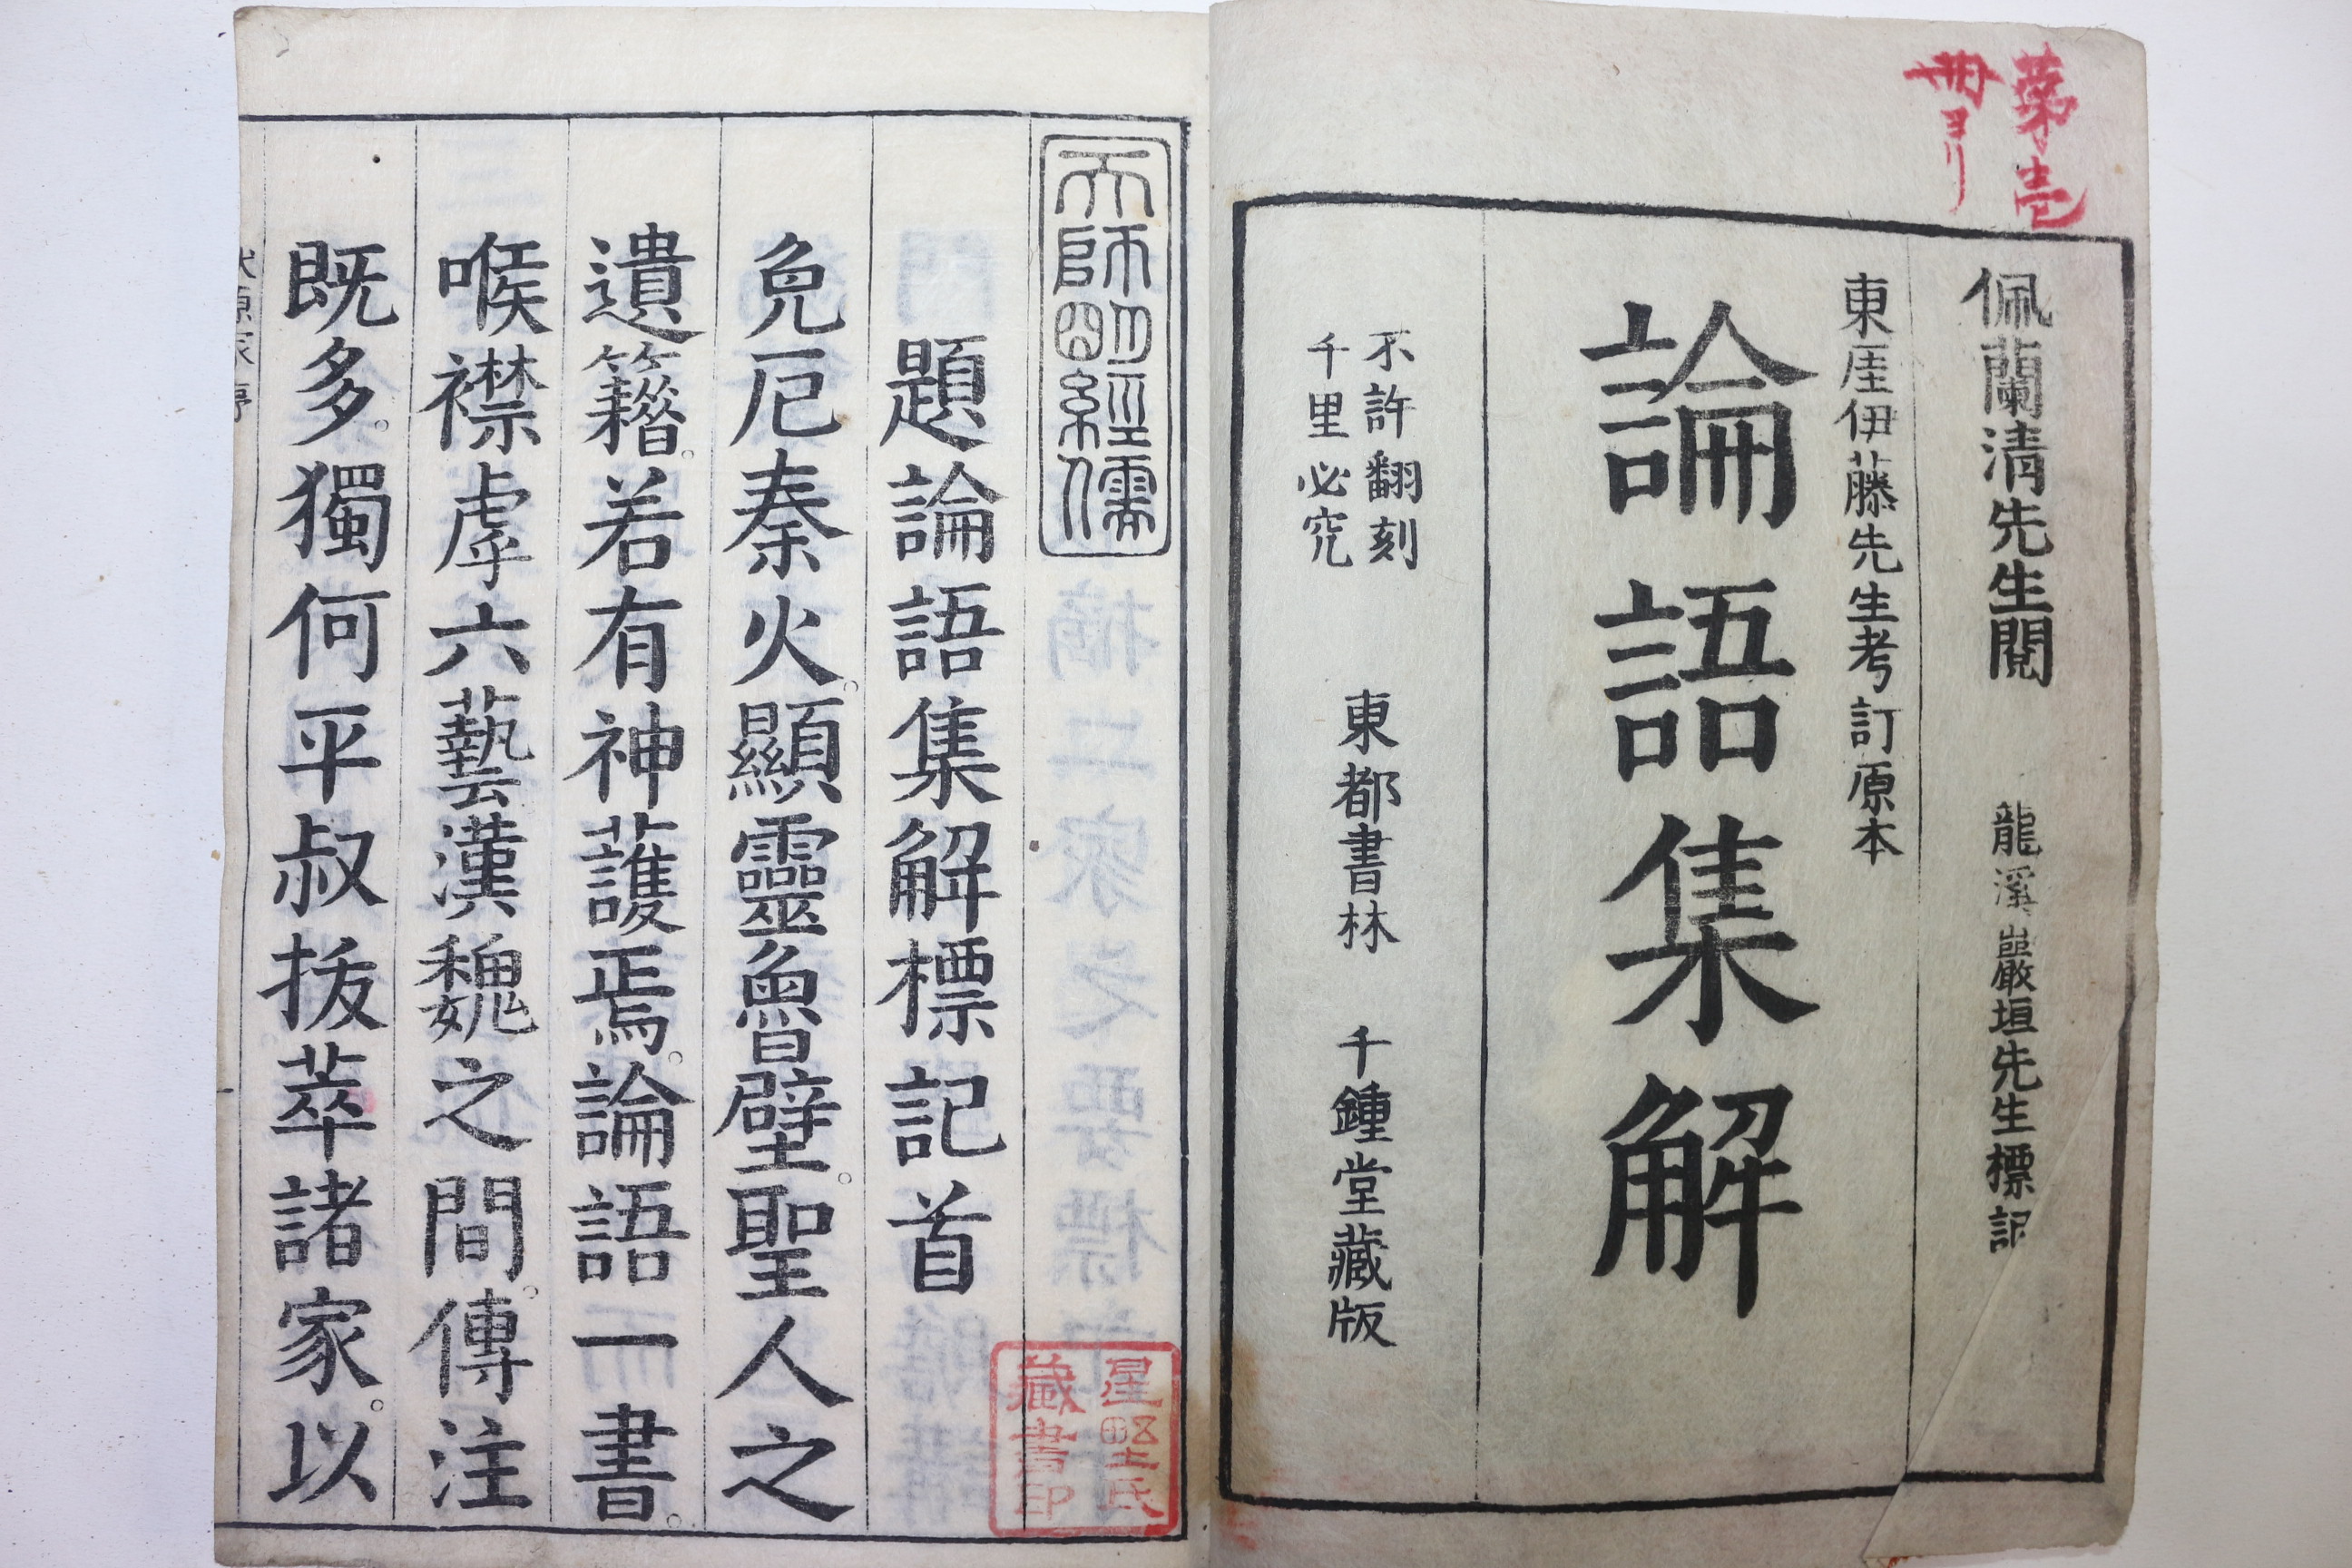 第壱
冊ヨリ
佩蘭清先生閱　龍溪巖垣先生標記
東厓伊藤先生考訂原本
論語集解
不許翻刻
千里必究
東都書林　千鍾堂藏版
天師明經儒
題論語集解標記首
免厄秦火。顯靈魯壁。聖人之
遺籍。若有神護焉。論語一書。
喉襟虖六藝漢魏之間。傳注
既多。獨何平叔拔萃諸家。以
星野氏
藏書印